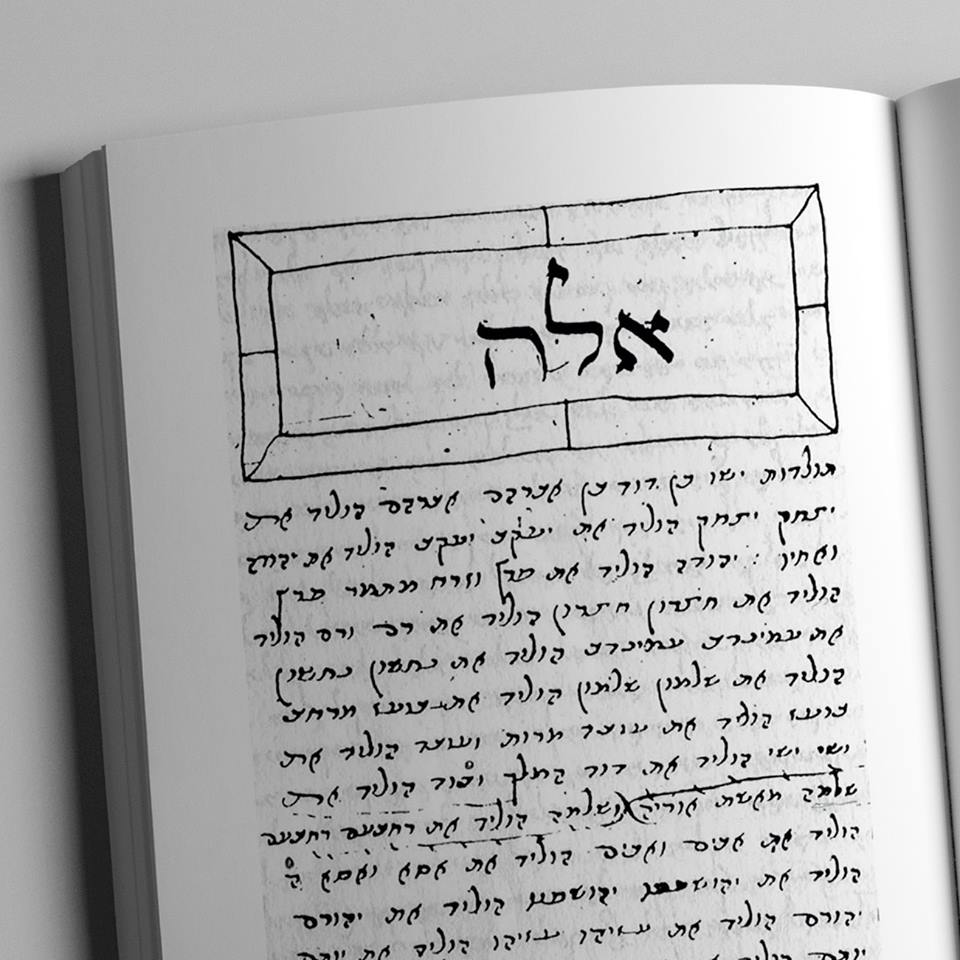 אלה
תולדות ישו בן דוד בן אברהם אברהם הוליד את
יצחק יצחק הוליד את יעקב יעקב הוליד את יהודה
ואחיו : יהודה הוליד את פרץ וזרח מתמר פרץ
הוליד את חצרון חצרון הוליד את רם ורם הוליד
את עמינדב עמינדב הוליד את נחשון נחשון
הוליד את שלמון שלמון הוליד את בועז מרחב
בועז הוליד את עובד מרות ועובד הוליד את
ישי ישי הוליד את דוד המלך ודוד הוליד את
שלמה מאשת אוריה ושלמה הוליד את רחבעם רחבעם
הוליד את אבים ואבים הוליד את אסא ואסא ה
הוליד את יהושפט יהושפט הוליד את יהורם
יהורם הוליד את עזיהו עזיהו הוליד את יותם